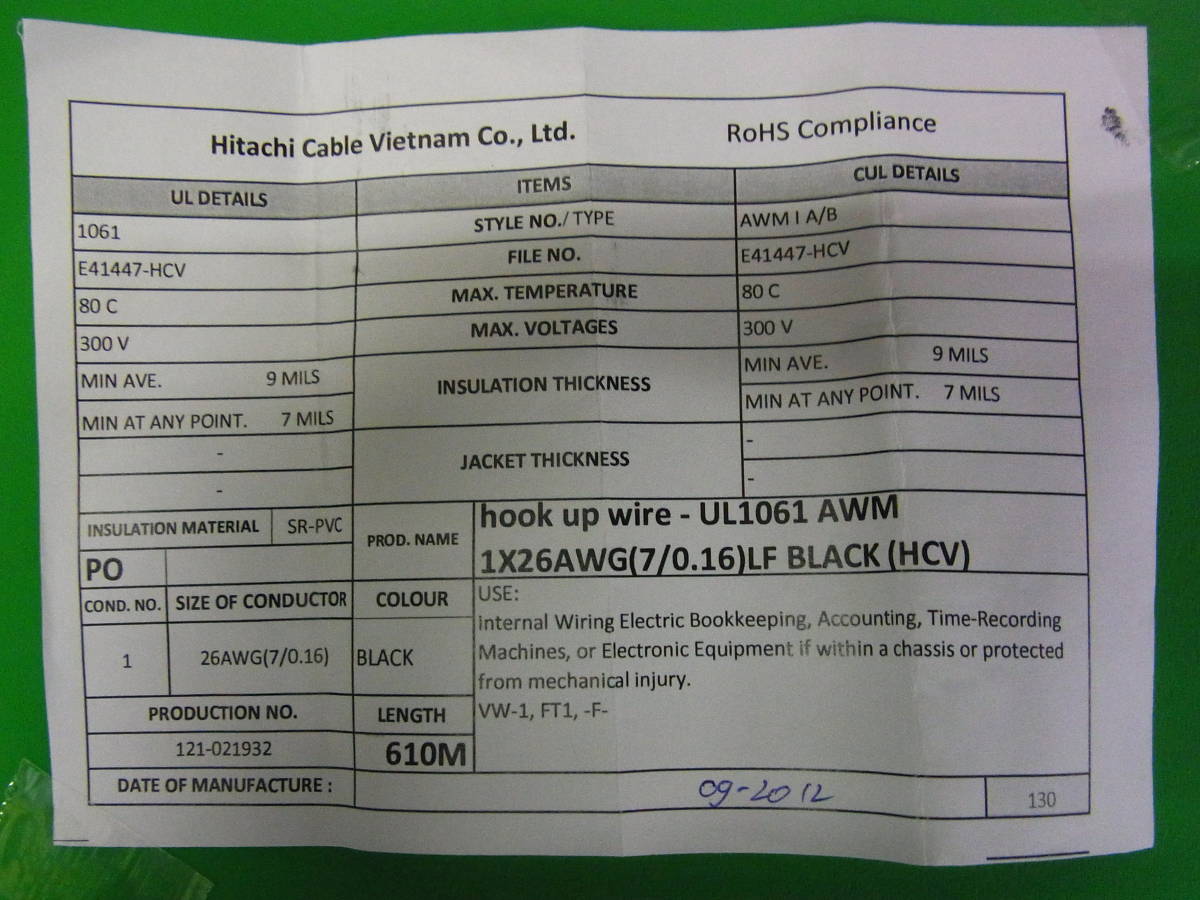 Hitachi Cable Vietnam Co., Ltd. RoHS Compliance
UL DETAILS ITEMS CUL DETAILS
1061 STYLE NO./ TYPE AWM I A/B
E41447-HCV FILE NO. E41447-HCV
80 C MAX. TEMPERATURE 80 C
300 V MAX. VOLTAGES 300 V
MIN AVE. 9 MILS INSULATION THICKNESS MIN AVE. 9 MILS
MIN AT ANY POINT. 7 MILS MIN AT ANY POINT. 7 MILS
- JACKET THICKNESS -
- -
INSULATION MATERIAL SR-PVC PROD. NAME hook up wire - UL1061 AWM
PO 1X26AWG(7/0.16)LF BLACK (HCV)
COND. NO. SIZE OF CONDUCTOR COLOUR USE:
1 26AWG(7/0.16) BLACK Internal Wiring Electric Bookkeeping, Accounting, Time-Recording
Machines, or Electronic Equipment if within a chassis or protected
from mechanical injury.
PRODUCTION NO. LENGTH VW-1, FT1, -F-
121-021932 610M
DATE OF MANUFACTURE : 09-2012 130